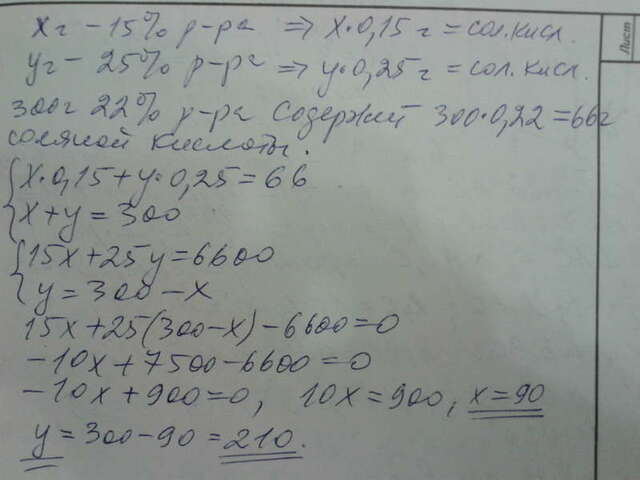 xг - 15% р-ра ⇒ x·0,15 г = сол. кисл.
yг - 25% р-ра ⇒ y·0,25 г = сол. кисл.
300г 22% р-ра содержит 300·0,22=66г
соляной кислоты.
{x·0,15+y·0,25=66
{x+y=300
{15x+25y=6600
{y=300-x
15x+25(300-x)-6600=0
-10x+7500-6600=0
-10x+900=0, 10x=900, x=90
y=300-90=210.
Лист